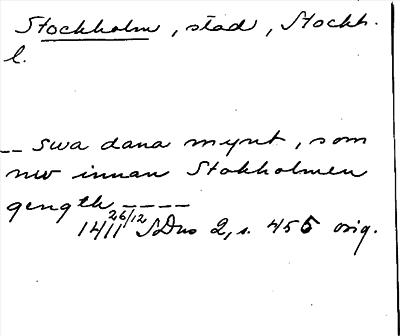 Stockholm, stad, Stockh.
l.
-- swa dana mynt, som
nw innan Stokholmen
gength ----
1411 26/12 SDns 2, s. 455 orig.